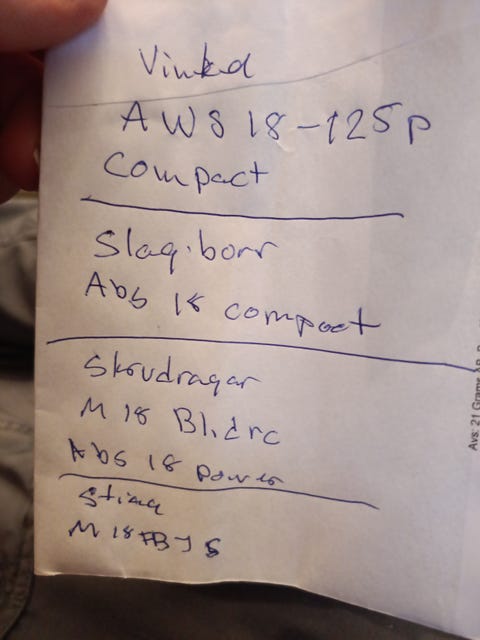 Vinkel
AWS 18-125P
Compact
Slag.borr
Abs 18 compact
Skruvdragar
M 18 Blidrc
Abs 18 power
M 18 FBJS
Avs: 21 Grams AB